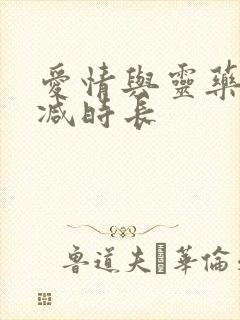 愛情與靈藥
減時長
魯道夫·華倫